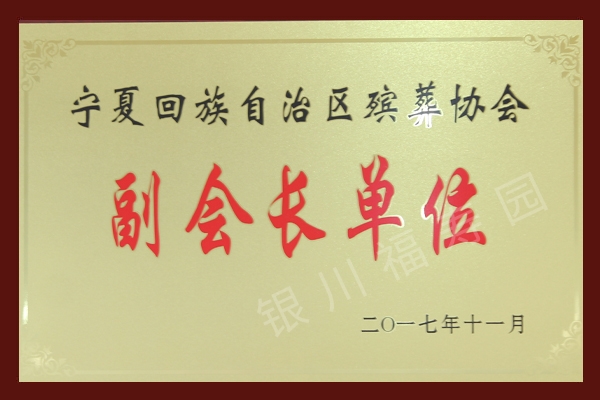 宁夏回族自治区殡葬协会
副会长单位
银川福寿园
二〇一七年十一月